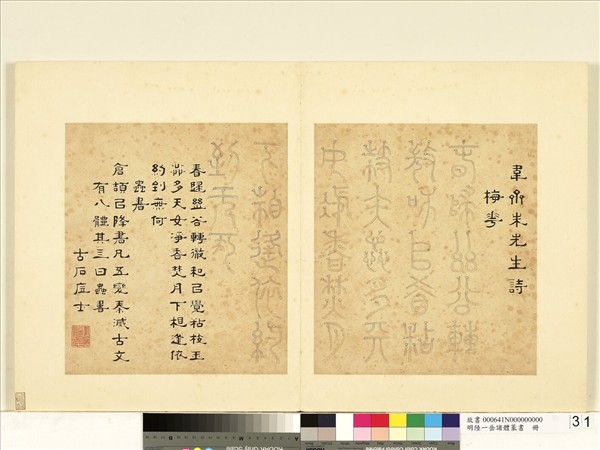 韋齋朱先生詩
梅花
春歸幽谷轉微和已覺粘枝玉
蕊多天女淨香焚月下相逢依
約到無何
蟲書
倉頡已降書凡五變秦滅古文
有八體其三曰蟲書
古石居士
故書 000641N000000000
明陸一岳諸體篆書 冊
31